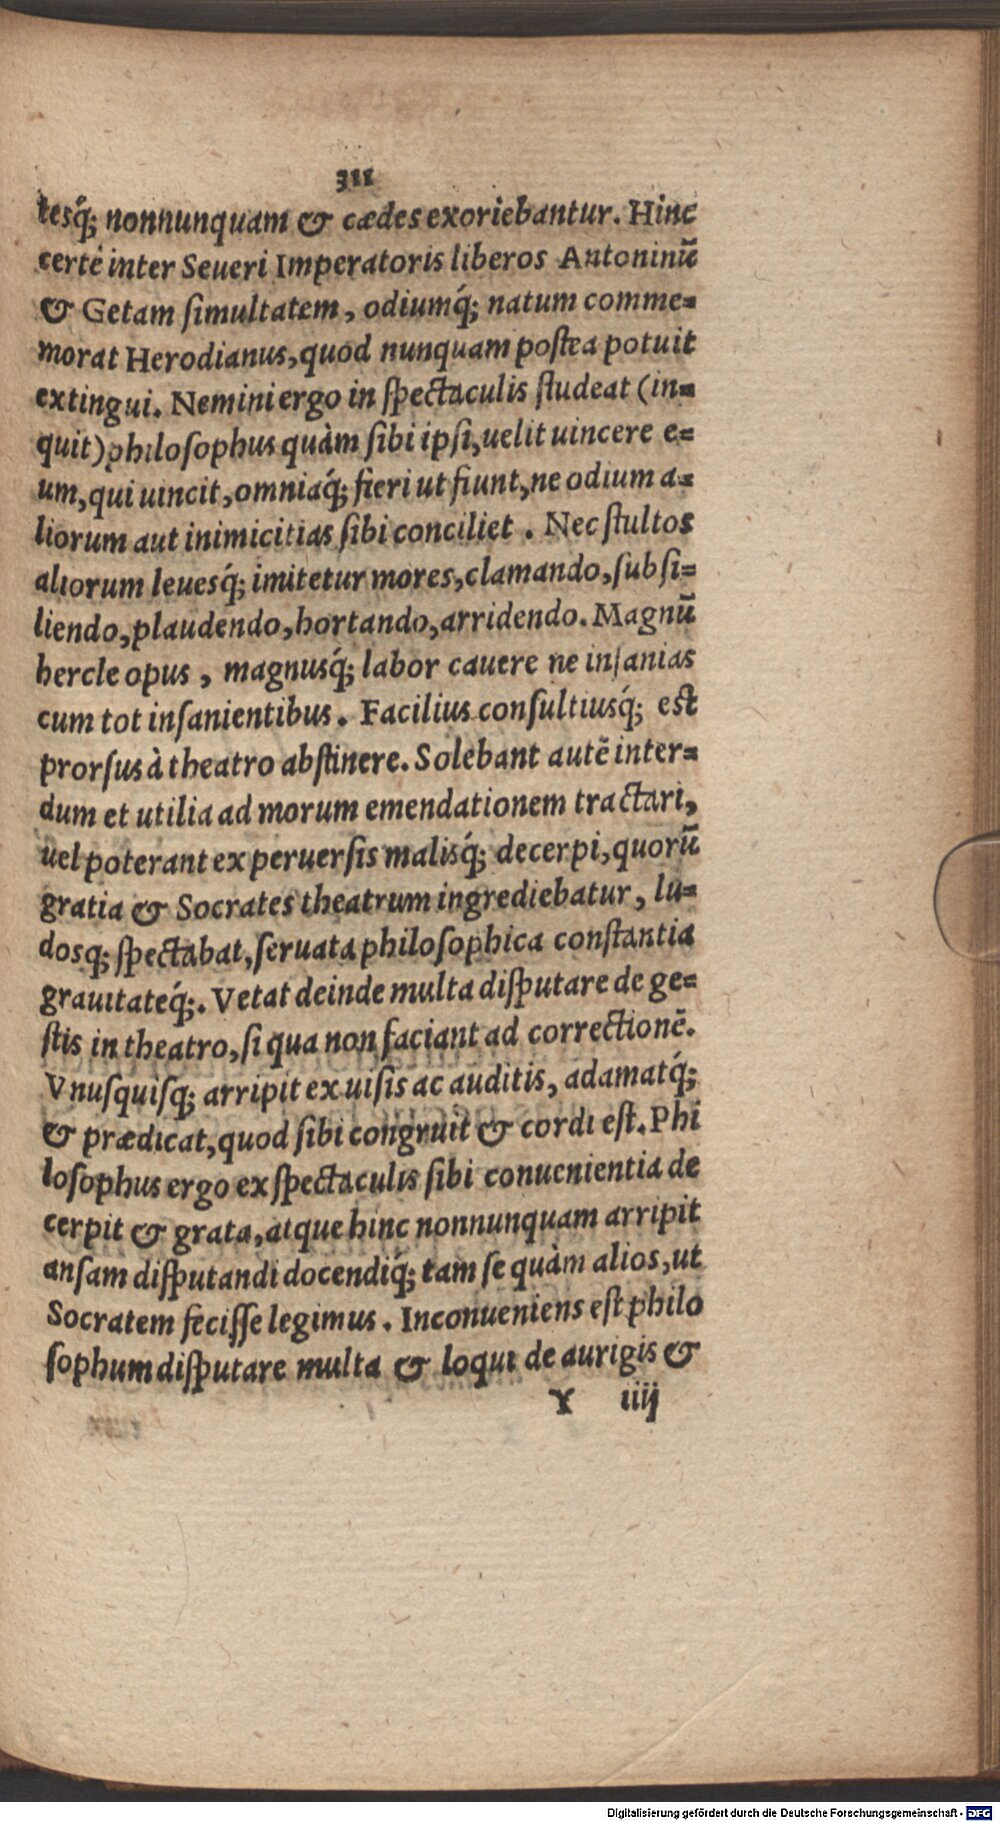 311
tesq́; nonnunquam & cædes exoriebantur. Hinc
certè inter Seueri Imperatoris liberos Antoninū
& Getam ſimultatem, odiumq́; natum comme=
morat Herodianus, quod nunquam poſtea potuit
extingui. Nemini ergo in ſpectaculis ſtudeat (in=
quit) philoſophus quàm ſibi ipſi, uelit uincere e=
um, qui uincit, omniaq́; fieri ut fiunt, ne odium a=
liorum aut inimicitias ſibi conciliet. Nec ſtultos
aliorum leuesq́; imitetur mores, clamando, ſubſi=
liendo, plaudendo, hortando, arridendo. Magnū
hercle opus, magnusq́; labor cauere ne inſanias
cum tot inſanientibus. Facilius conſultiusq́; est
prorſus à theatro abſtinere. Solebant autē inter=
dum et utilia ad morum emendationem tractari,
uel poterant ex peruerſis malisq́; decerpi, quorū
gratia & Socrates theatrum ingrediebatur, lu=
dosq; ſpectabat, ſeruata philoſophica conſtantia
grauitateq́;. Vetat deinde multa diſputare de ge=
ſtis in theatro, ſi qua non faciant ad correctionē.
Vnuſquiſq; arripit ex uiſis ac auditis, adamatq́;
& prædicat, quod ſibi congruit & cordi eſt. Phi
loſophus ergo ex ſpectaculis ſibi conuenientia de
cerpit & grata, atque hinc nonnunquam arripit
anſam diſputandi docendiq́; tam ſe quàm alios, ut
Socratem feciſſe legimus. Inconueniens eſt philo
ſophum diſputare multa & loqui de aurigis &
Y iiij
Digitalisierung gefördert durch die Deutsche Forschungsgemeinschaft - DFG